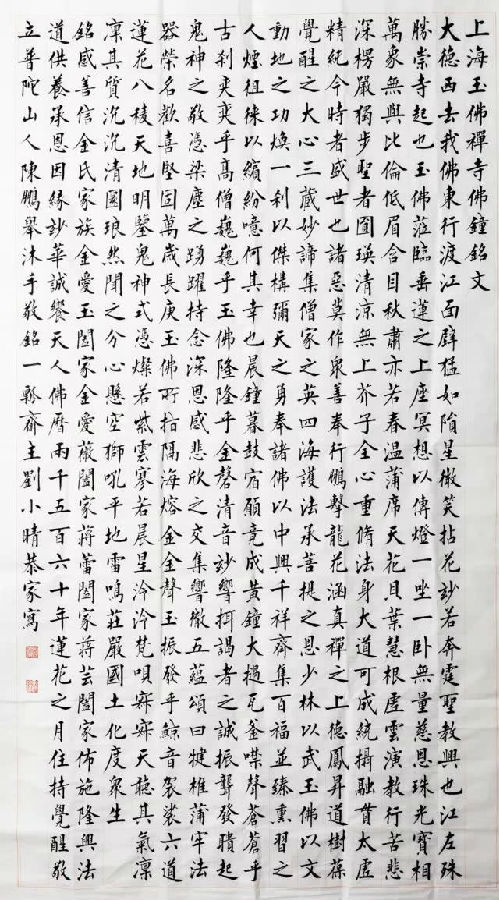 上海玉佛禪寺佛鐘銘文
大德西去我佛東行渡江面壁猛如隕星微笑拈花妙若奔霆聖教興也江左殊
勝崇寺起也玉佛蒞臨垂蓮之上座冥想以傳燈一坐一卧無量慈恩珠光寶相
萬象無與比倫低眉含目秋肅亦若春溫蒲席天花貝葉慧根虛雲演教行苦悲
深楞嚴獨步聖者圓瑛清涼無上芥子全心重脩法身大道可成統攝融貫太虛
精純今時者盛世也諸惡莫作衆善奉行鵬擧龍花涵真禪之上德鳳昇道樹葆
覺醒之大心三藏妙諦集僧家之英四海護法承菩提之恩少林以武玉佛以文
動地之功煥一刹以傑構彌天之勇奉諸佛以中興千祥齊集百福並臻熏習之
人煙徂徠以繽紛噫何其幸也晨鐘暮鼓宿願竟成黃鐘大搥瓦釜噤聲蒼蒼乎
古刹奕奕乎高僧巍巍乎玉佛隆隆乎金磬清音妙響揖謁者之誠振聾發聵起
鬼神之敬憑梁塵之踴躍持念深思感悲欣之交集響徹五蘊頌曰犍椎蒲牢法
器榮名歡喜堅固萬歲長庚玉佛所指隔海熔金金聲玉振發乎鯨音袈裟六道
蓮花八稜天地明鑒鬼神式憑燦若燕雲寥若晨星泠泠梵唄寂寂天聽其氣凛
凛其質沉沉清圓琅然聞之分心懸空獅吼平地雷鳴莊嚴國土化度衆生
銘感善信金氏家族金愛玉闔家金愛闔家蔣蕾闔家蔣芸闔家佈施隆興法
道供養承恩因緣妙華誠饗天人佛曆兩千五百六十年蓮花之月住持覺醒敬
立普陀山人陳鵬擧沐手敬銘一瓢齋主劉小晴恭家寫